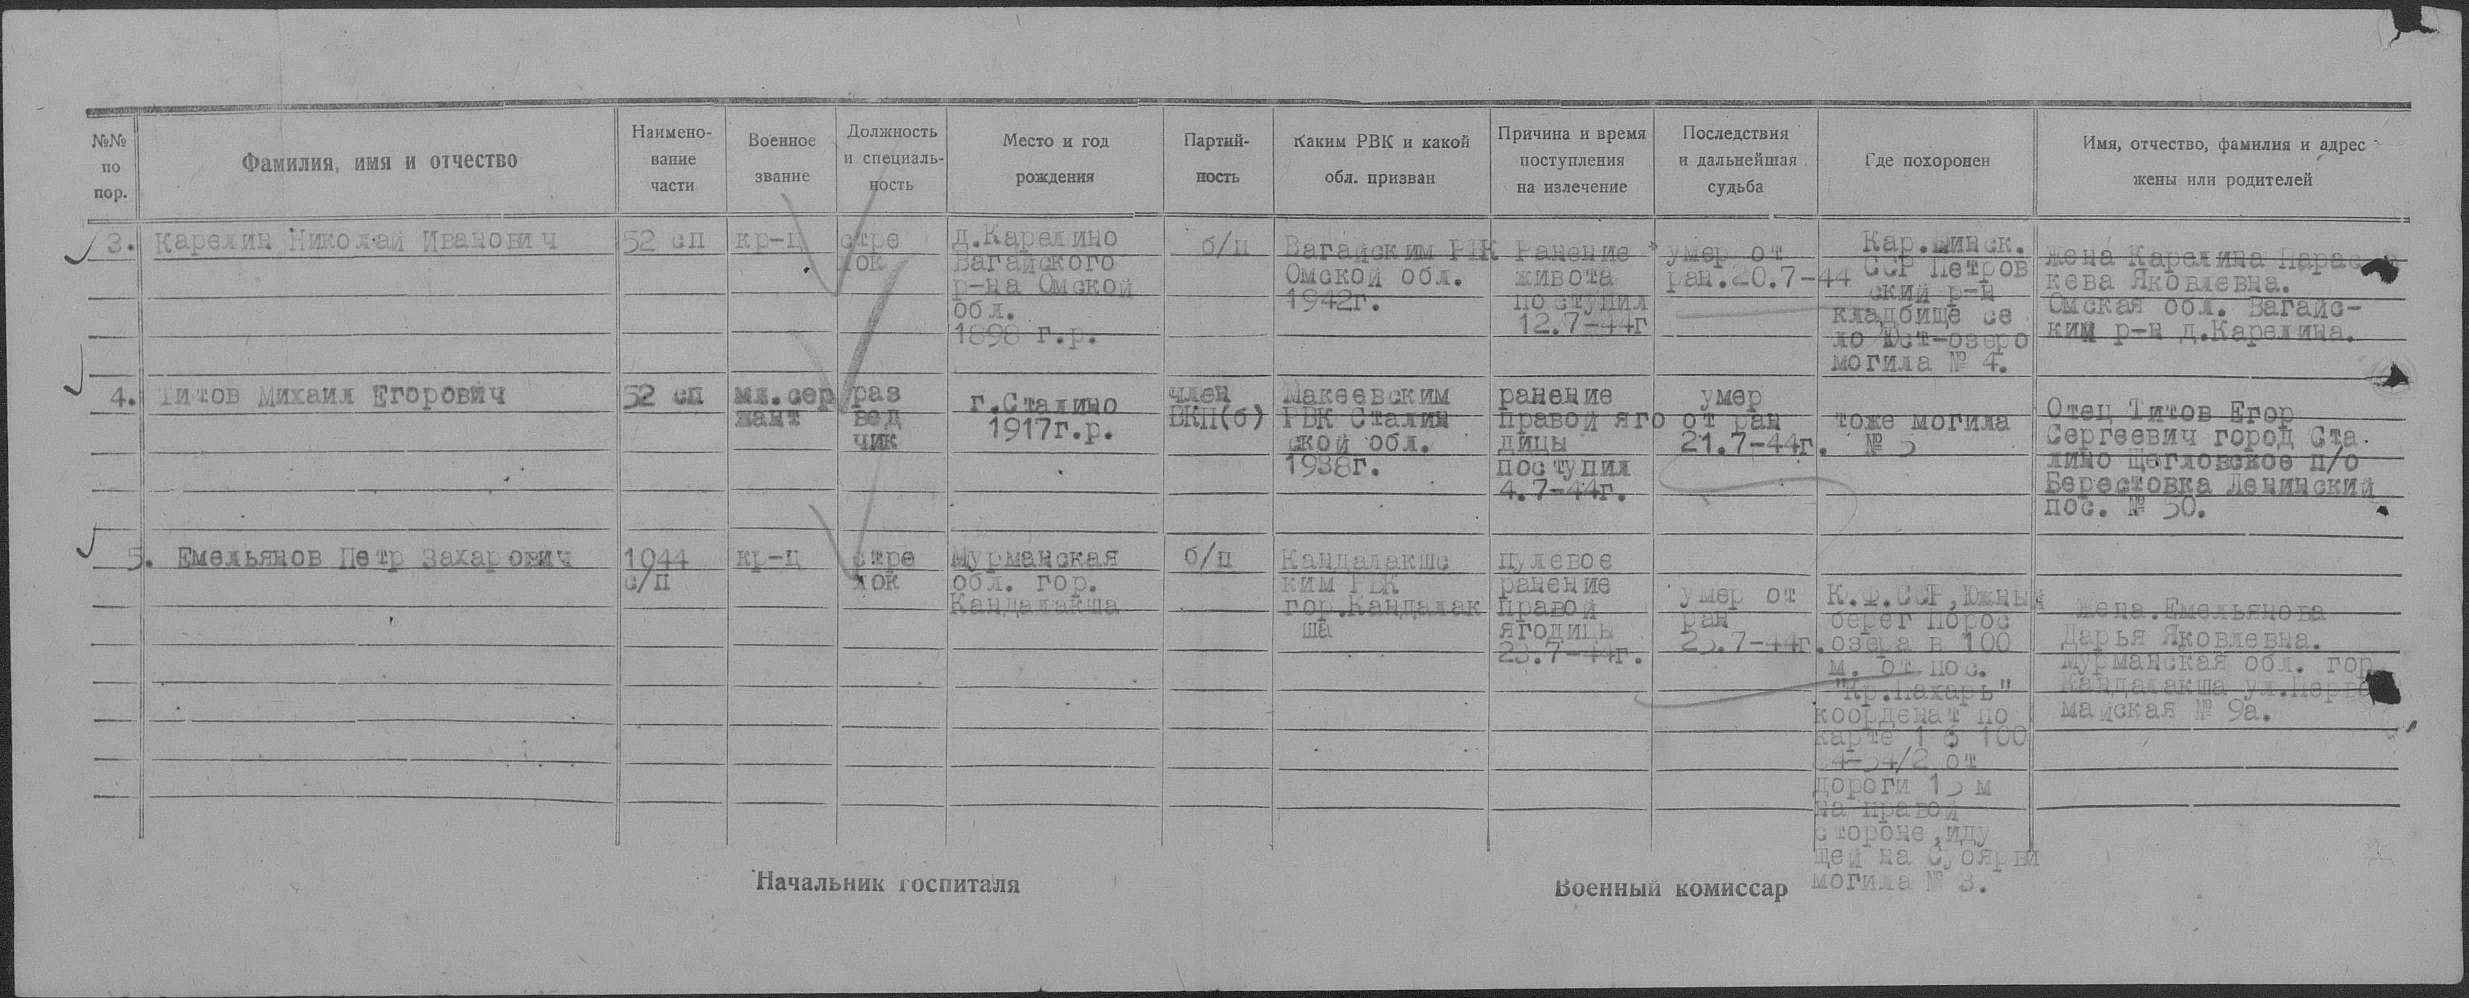 №№
по
пор.
Фамилия, имя и отчество
Наимено-
вание
части
Военное
звание
Должность
и специаль-
ность
Место и год
рождения
Партий-
ность
Каким РВК и какой
обл. призван
Причина и время
поступления
на излечение
Последствия
и дальнейшая
судьба
Где похоронен
Имя, отчество, фамилия и адрес
жены или родителей
3.
Карелин Николай Иванович
52 сп
кр-ц
стре
лок
д.Карелино
Вагайского
р-на Омской
обл.
1898 г.р.
б/п
Вагайским РВК
Омской обл.
1942г.
Ранение
живота
поступил
12.7-44г
умер от
ран.20.7-44
Кар.Финск.
ССР Петров
ский р-н
кладбище се
ло Юст-озеро
могила № 4.
жена Карелина Парас
кева Яковлевна.
Омская обл. Вагайс-
ким р-н д.Карелина.
4.
Титов Михаил Егорович
52 сп
мл.сер
жант
раз
вед
чик
г.Сталино
1917г.р.
член
ВКП(б)
Макеевским
РВК Сталин
ской обл.
1938г.
ранение
правой яго
дицы
поступил
4.7-44г.
умер
от ран
21.7-44г.
тоже могила
№ 5
Отец Титов Егор
Сергеевич город Ста
лино Щегловское п/о
Берестовка Ленинский
пос. № 50.
5.
Емельянов Петр Захарович
1044
с/п
кр-ц
стре
лок
Мурманская
обл. гор.
Кандалакша
б/п
Кандалакшс
ким РВК
гор.Кандалак
ша
пулевое
ранение
правой
ягодицы
23.7-44г.
умер от
ран
25.7-44г.
К.Ф.ССР,Южный
берег Порос
озера в 100
м. от пос.
"Кр.Пахарь"
коорденат по
карте 1 б 100
54-54/2 от
дороги 15 м
на правой
стороне,иду
щей на Суоярви
могила № 3.
жена.Емельянова
Дарья Яковлевна.
Мурманская обл. гор
Кандалакша ул.Перво
майская № 9а.
Начальник госпиталя
Военный комиссар